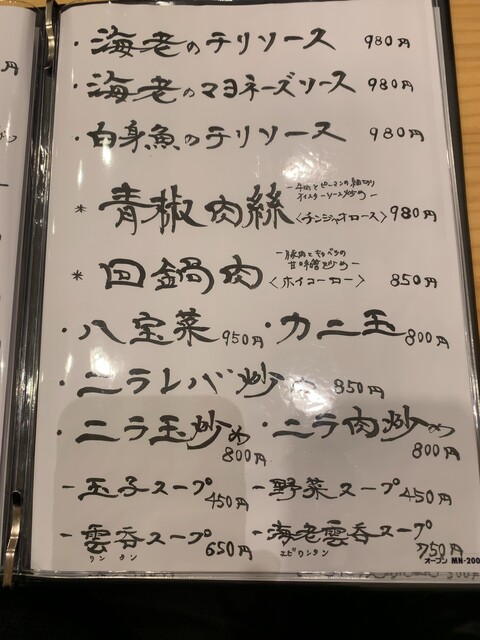 ・海老のチリソース 980円
・海老のマヨネーズソース 980円
・白身魚のチリソース 980円
＊青椒肉絲 ー牛肉とピーマンの細切り
オイスターソース炒めー
〈チンジャオロース〉 980円
＊回鍋肉 ー豚肉とキャベツの
甘味噌炒めー
〈ホイコーロー〉 850円
・八宝菜 950円 ・カニ玉 800円
・ニラレバ炒め 850円
・ニラ玉炒め 800円 ・ニラ肉炒め 800円
ー玉子スープ 450円 ー野菜スープ 450円
ー雲呑スープ 650円 ー海老雲呑スープ 750円
ワンタン エビワンタン
オープン MN-200